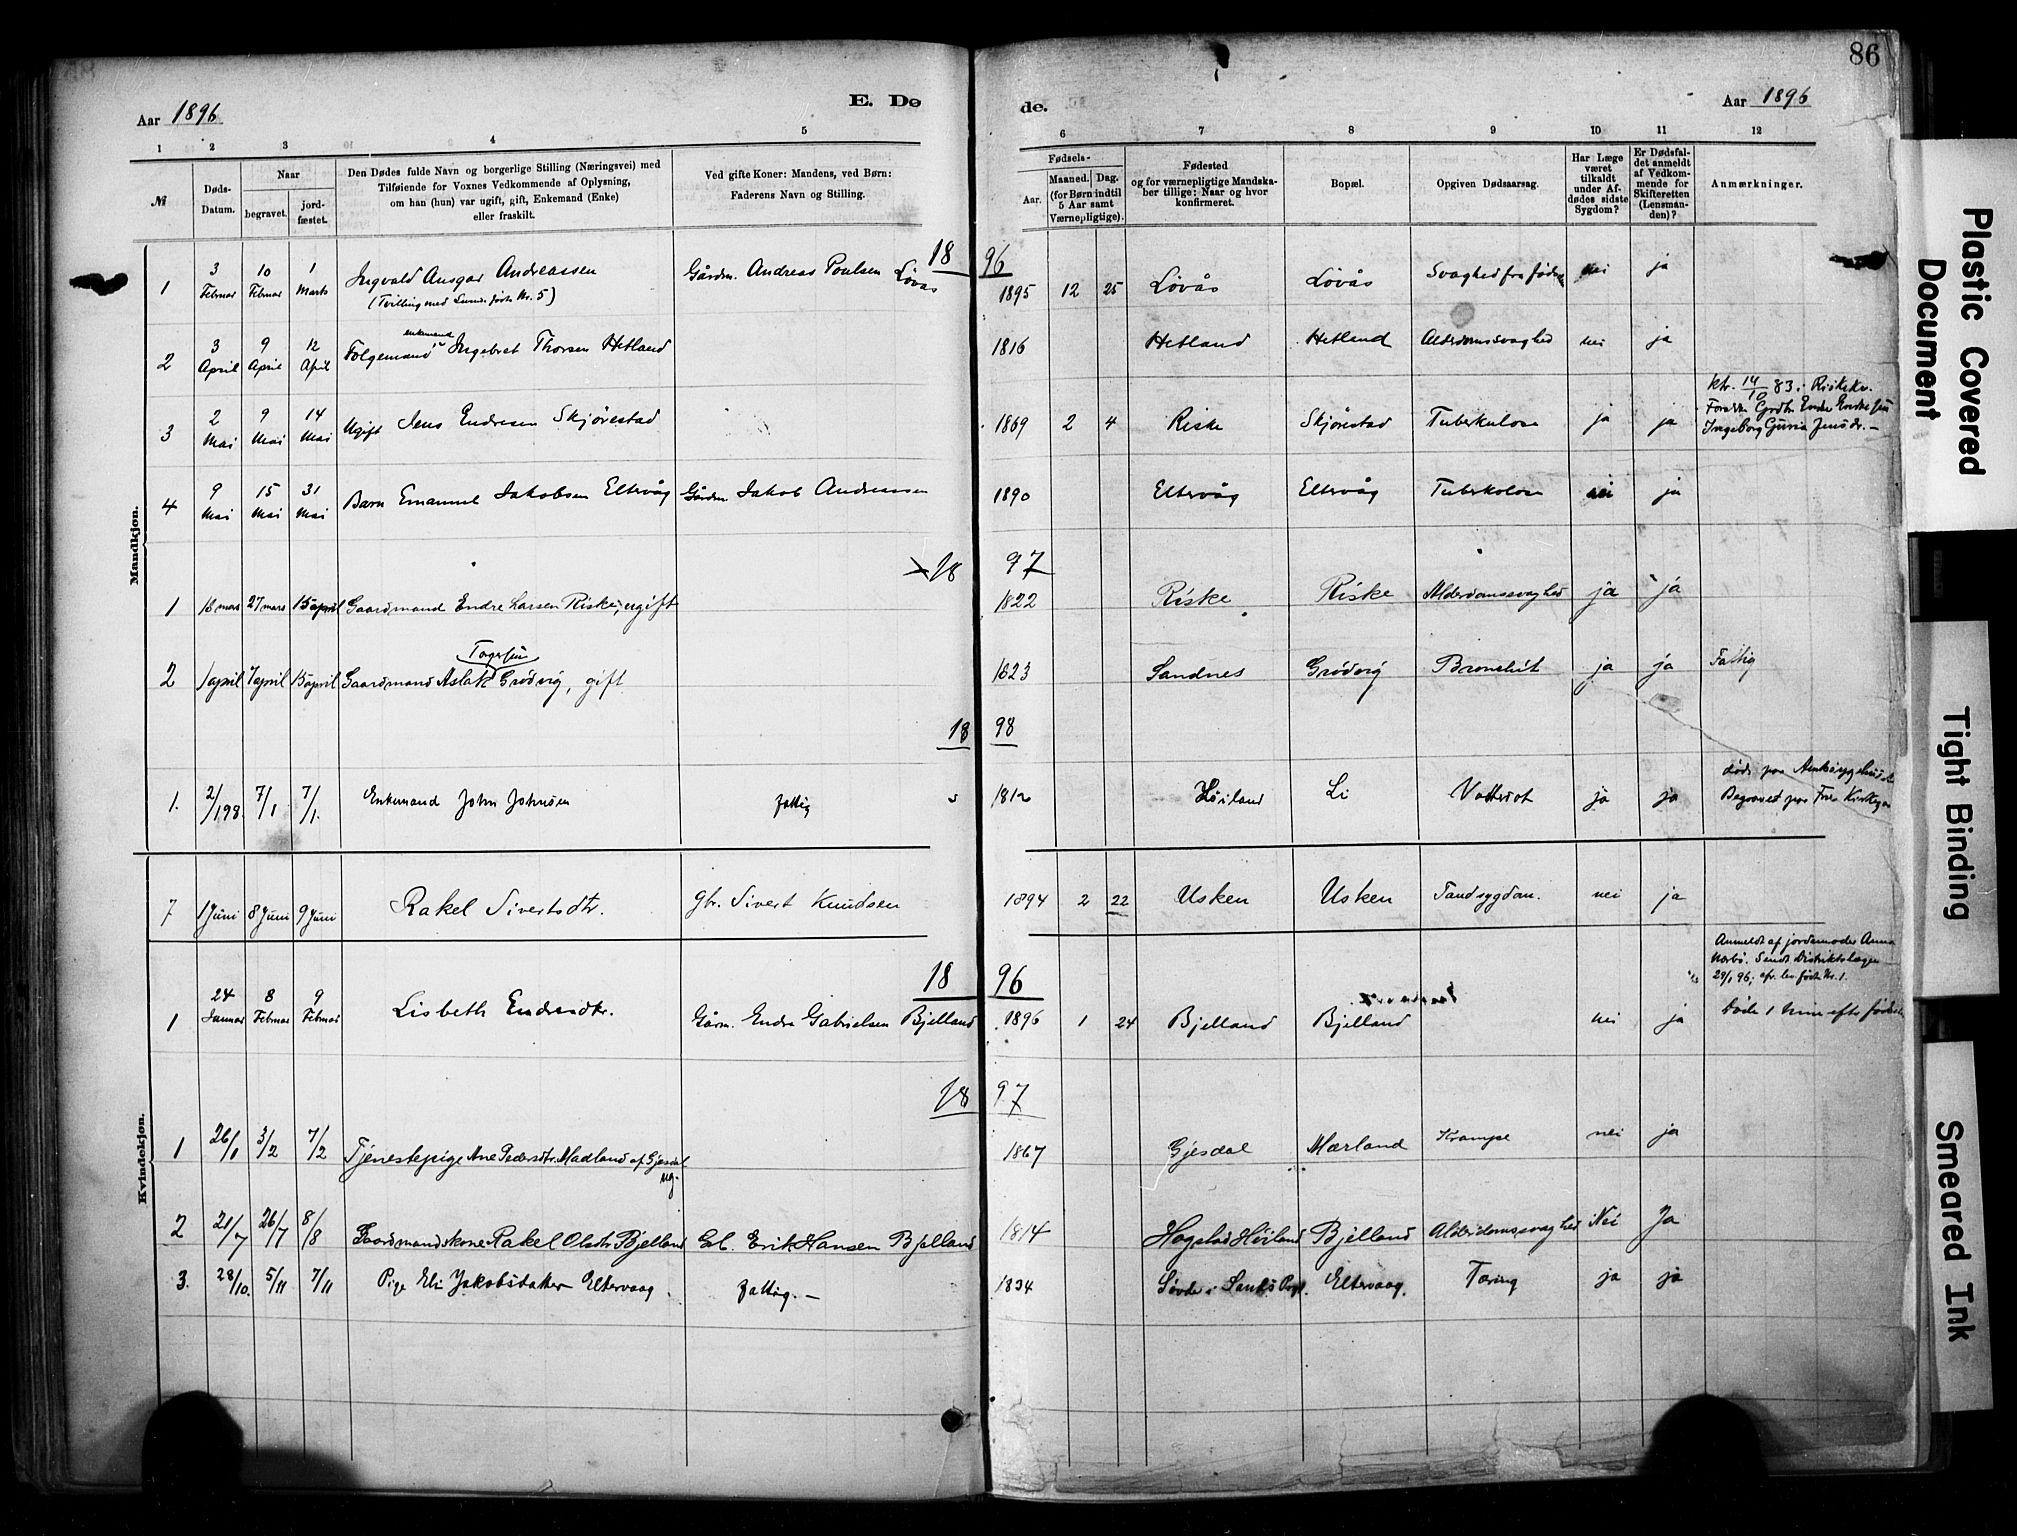 86
Aar 1896
E. Dø
de.
Aar 1896
1 2 3 4 5 6 7 8 9 10 11 12
№
Døds-Datum.
Naar
begravet.
jord-fæstet.
Den Dødes fulde Navn og borgerlige Stilling (Næringsvei) med
Tilføiende for Voxnes Vedkommende af Oplysning,
om han (hun) var ugift, gift, Enkemand (Enke)
eller fraskilt.
Ved gifte Koner: Mandens, ved Børn:
Faderens Navn og Stilling.
Fødsels-
Aar.
Maaned. Dag.
(for Børn indtil
5 Aar samt
Værnepligtige).
Fødested
og for værnepligtige Mandska-
ber tillige: Naar og hvor
konfirmeret.
Bopæl.
Opgiven Dødsaarsag.
Har Læge
været
tilkaldt
under Af-
dødes sidste
Sygdom?
Er Dødsfal-
det anmeldt
af Vedkom-
mende for
Skifteretten
(Lensman-
den)?
Anmærkninger.
Mandkjøn.
18 96
1 3 Februar 10 Februar 1 Marts Ingvald Ansgar Andreassen Gårdm. Andreas Poulsen Lövås 1895 12 25 Lövås Lövås Svaghed fra føds nei ja
(Tvilling med Nr. 5)
2 3 April 9 April 12 April Følgemand enkemand Ingebret Thorsen Hetland 1816 Hetland Hetland Alderdomssvaghed nei ja
3 2 Mai 9 Mai 14 Mai Ugift Jens Endresen Skjørestad 1869 2 4 Riske Skjørestad Tuberkulose ja ja
14/10 83 i Riskekv.
Endre
Ingeborg Guria Jensdr. —
4 9 Mai 15 Mai 31 Mai Barn Emanuel Jakobsen Eltervåg Gårdm. Jakob Andreassen 1890 Eltervåg Eltervåg Tuberkolose nei ja
18 97
1 18 mars 27 mars 15 april Gaardmand Endre Larsen Riske, ugift 1822 Riske Riske Alderdomssvaghed ja ja
2 1 april 7 april 15 april Gaardmand Aslak Grödvig, gift 1823 Sandnes Grödvig Bronchit ja ja Fattig
18 98
1. 2/1 98. 7/1 7/1. Enkemand John Johnsen fattig 1812 Høiland Li Vattersot ja ja
7 1 Juni 8 Juni 9 Juni Rakel Sivertsdtr. gbr. Sivert Knudsen 1894 2 22 Usken Usken Tandsygdom. nei ja
Kvindekjøn.
18 96
Anmeldt af jordemoder Anna
Norbø. Sendt Distriktslægen
29/1 96; cfr. lev. født Nr. 1.
1 24 Januar 8 Februar 9 Februar Lisbeth Endresdtr. Gårm. Endre Gabrielsen Bjelland 1896 1 24 Bjelland Bjelland nei ja Døde 1 time efter
18 97
1 26/1 3/2 7/2 Tjenestepige Ane Pedersdtr. Madland af Gjesdal ug. 1867 Gjesdal Mærland Krampe nei ja
2 21/7 26/7 8/8 Gaardmandskone Rakel Olsdtr Bjelland Gbl. Erik Hansen Bjelland 1814 Hogstad Høiland Bjelland Alderdomssvaghed Nei Ja
3. 28/10. 5/11 7/11 Pige Eli Jakobsdatter Eltervaag. fattig. — 1834 Søvde i Sands Prgl. Eltervaag. Tæring ja ja
Plastic Covered
Document
Tight Binding
Smeared Ink